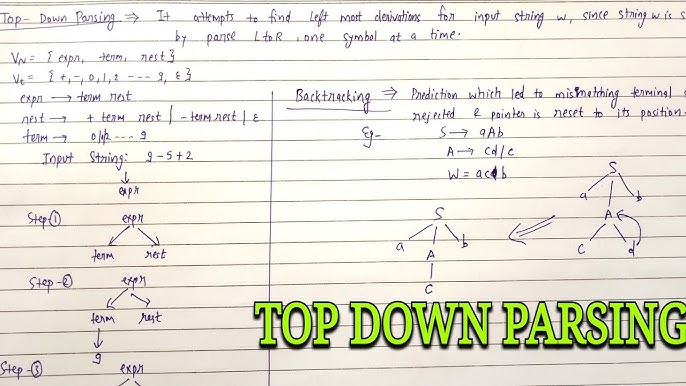 Top-Down Parsing ⇒ It attempts to find left most derivations for input string w, since string w is s
by parse L to R, one symbol at a time.
V_N = { expr, term, rest }
V_t = { +, -, 0, 1, 2 ---- 9, ε }
expr → term rest
rest → + term rest | - term rest | ε
term → 0/1/2 ---- 9
Input String: 9-5+2
expr
Step-①
expr
term rest
Step-②
expr
term rest
9
Step-③
expr
Backtracking ⇒ Prediction which led to mismatching terminal
rejected & pointer is reset to its position.
Eg-
S → aAb
A → cd/c
W = acb
S
a A b
C d
S
a A b
C
TOP DOWN PARSING